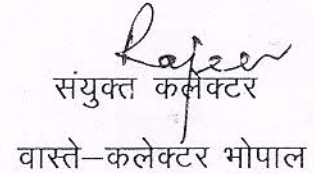 Rajeev
संयुक्त कलेक्टर
वास्ते–कलेक्टर भोपाल